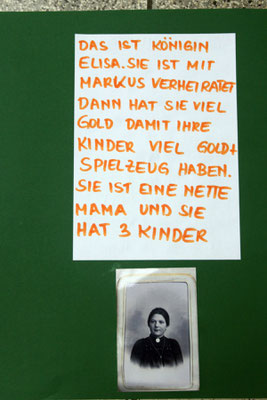 DAS IST KÖNIGIN
ELISA. SIE IST MIT
MARKUS VERHEIRATET
DANN HAT SIE VIEL
GOLD DAMIT IHRE
KINDER VIEL GOLD+
SPIELZEUG HABEN.
SIE IST EINE NETTE
MAMA UND SIE
HAT 3 KINDER